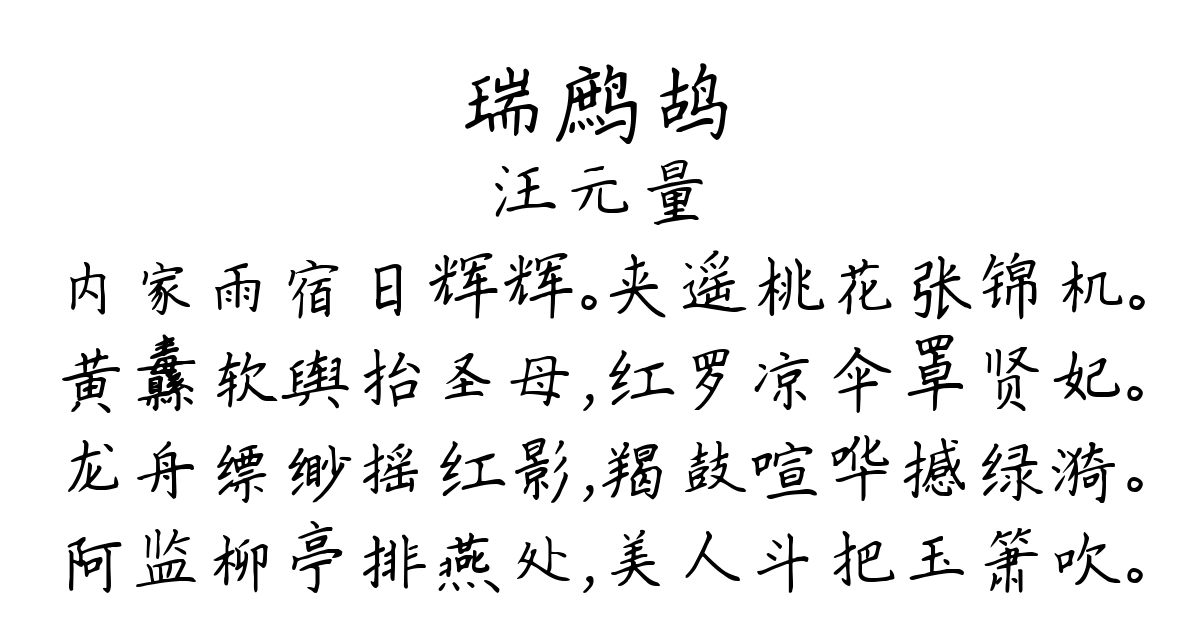 瑞鹧鸪
汪元量
内家雨宿日辉辉。夹遥桃花张锦机。
黄纛软舆抬圣母,红罗凉伞罩贤妃。
龙舟缥缈摇红影,羯鼓喧哗撼绿漪。
阿监柳亭排燕处,美人斗把玉箫吹。